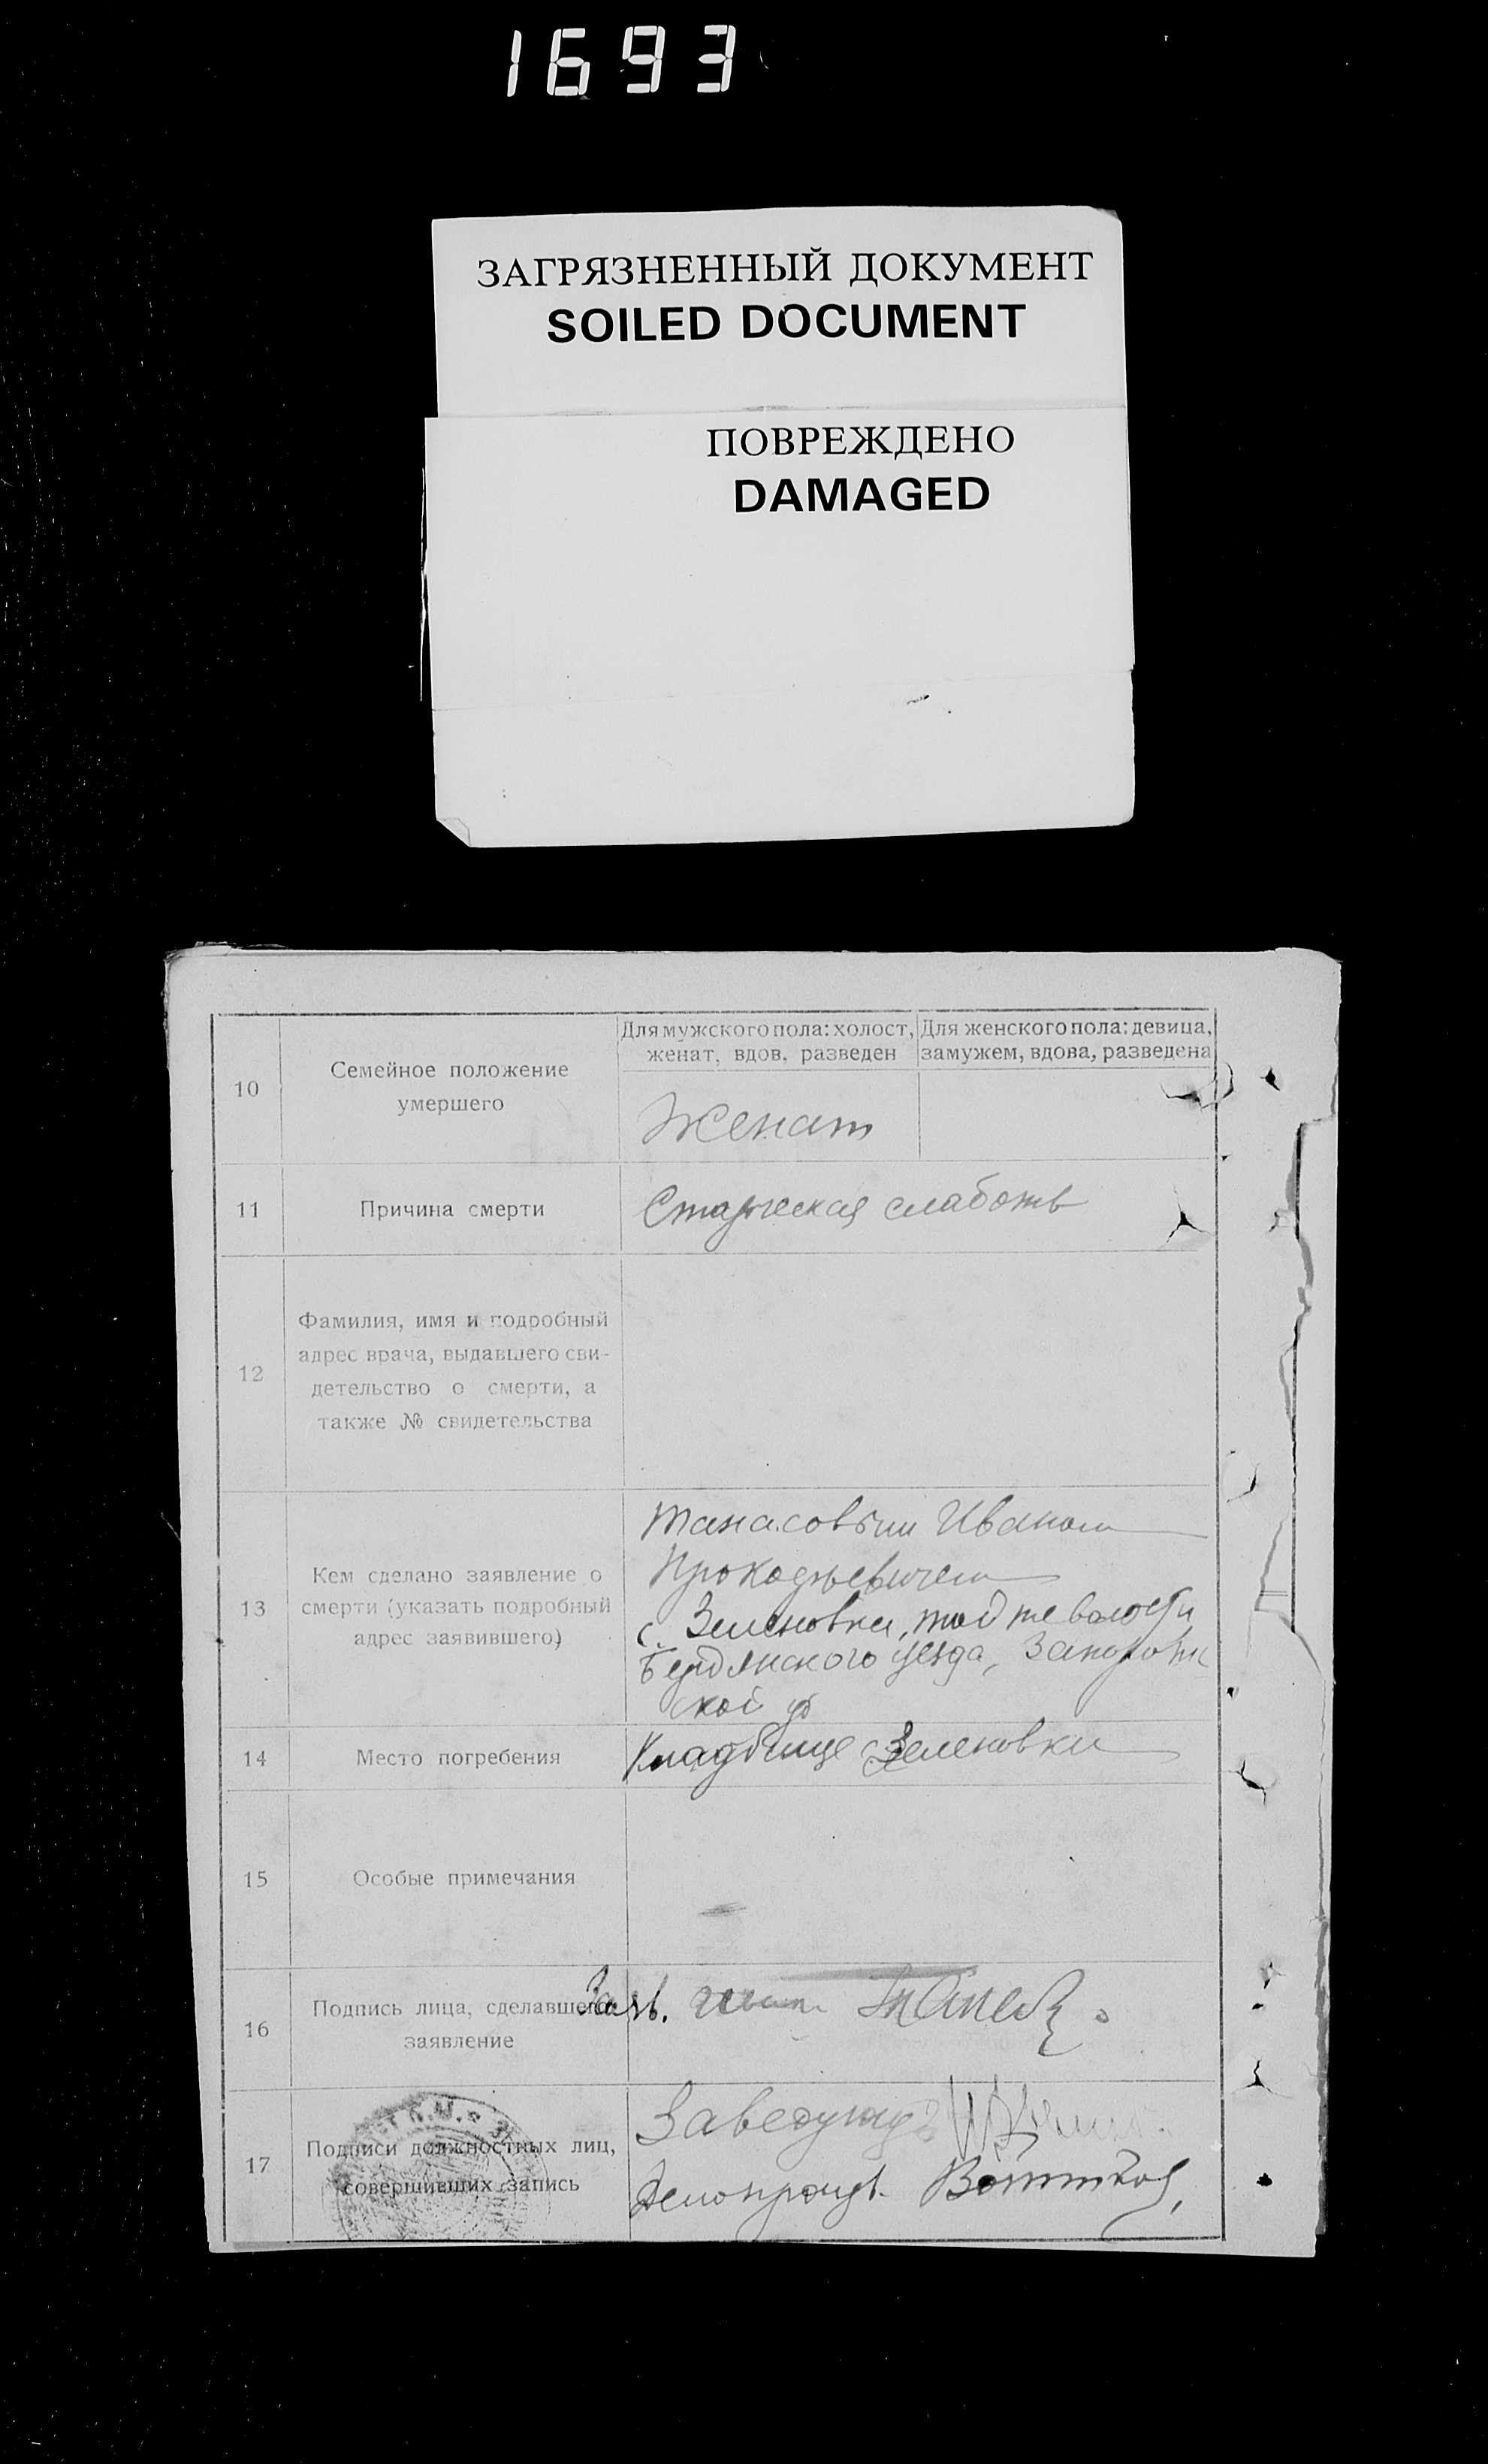 1693
ЗАГРЯЗНЕННЫЙ ДОКУМЕНТ
SOILED DOCUMENT
ПОВРЕЖДЕНО
DAMAGED
10
Семейное положение
умершего
Для мужского пола: холост,
женат, вдов, разведен
Для женского пола: девица,
замужем, вдова, разведена
Женат
11
Причина смерти
Старческая слабость
12
Фамилия, имя и подробный
адрес врача, выдавшего сви-
детельство о смерти, а
также № свидетельства
13
Кем сделано заявление о
смерти (указать подробный
адрес заявившего)
Танасовым Иваном
Прокофьевичем
с. Зеленовки, той же волости
Бердянского уезда, Запорож
ской г
14
Место погребения
Кладбище с Зеленовки
15
Особые примечания
16
Подпись лица, сделавшего
заявление
Заяв.
17
Подписи должностных лиц,
совершивших запись
Заведующ
Делопроизв.